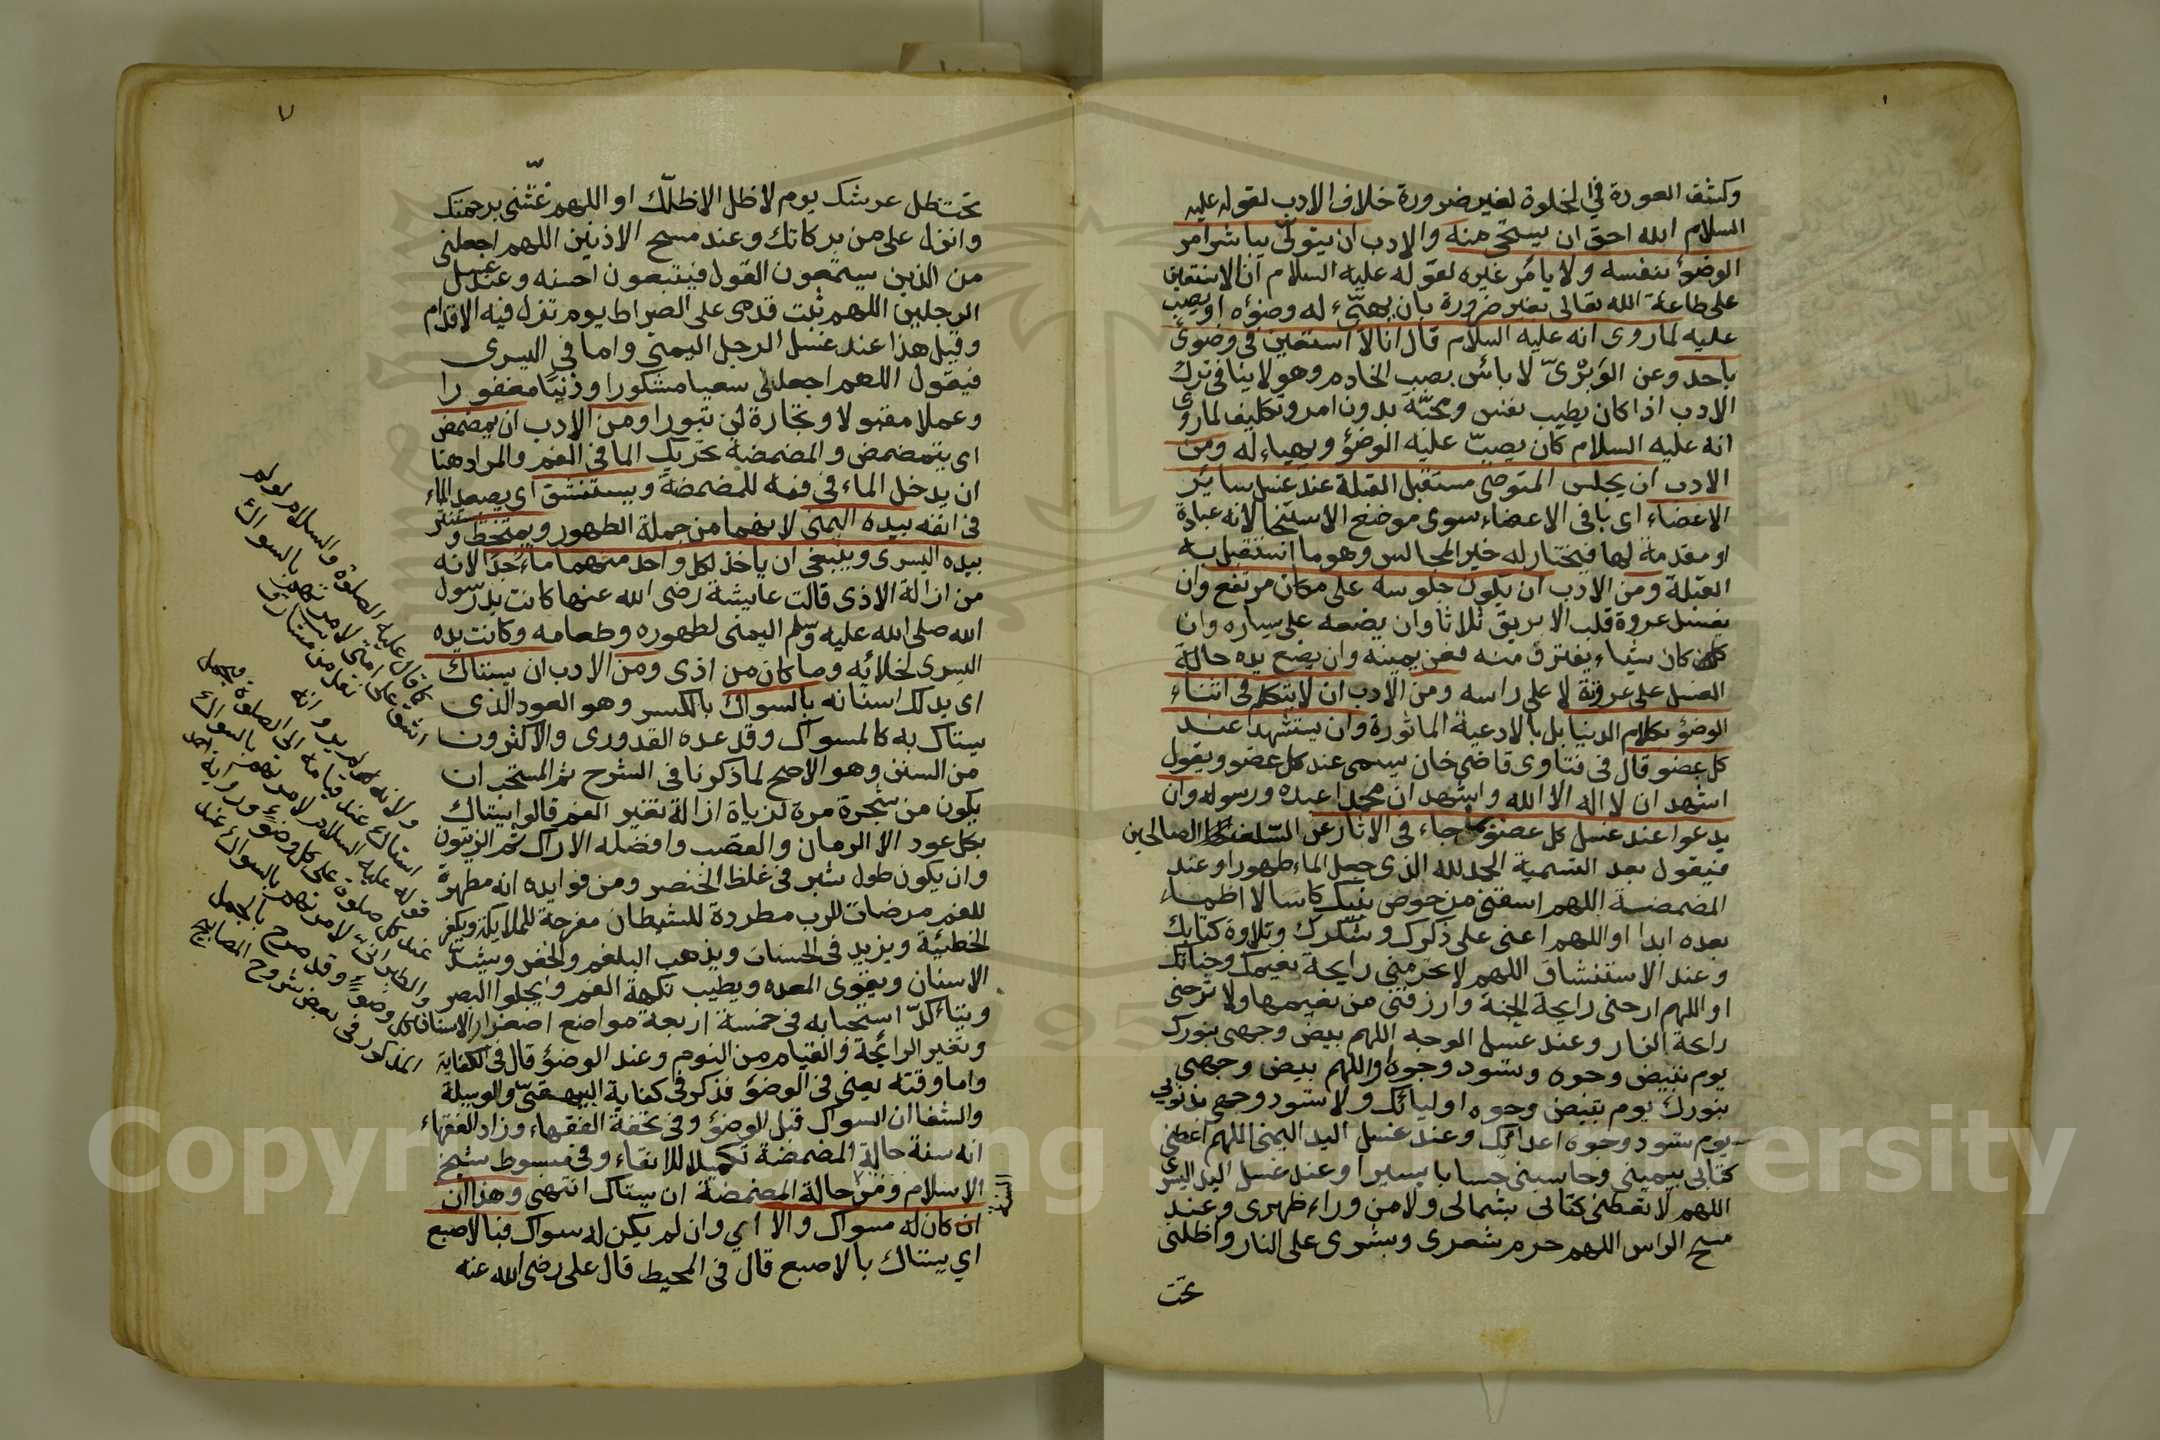 وكشف العورة في الخلوة لغير ضرورة خلاف الادب لقوله عليه
السلام الله احق ان يستحى منه والادب ان يتولى يباشر امر
الوضؤ بنفسه ولا يامر غيره لقوله عليه السلام انا لا نستعين
على طاعة الله تعالى بغير ضرورة بان يهيّء له وضؤه او يصب
عليه لما روى انه عليه السلام قال انا لا استعين في وضوئى
باحد وعن الوَبْرىّ لا بائس بصب الخادم وهو لا ينافى ترك
الادب اذا كان بطيب نفس ومحبّة بدون امر وتكليف لما روى
انه عليه السلام كان يصبّ عليه الوضؤ ويهياء له ومن
الادب ان يجلس المتوضى مستقبل القبلة عند غسل سائر
الاعضاء اى باقى الاعضاء سوى موضع الاستنجا لانه عبادة
او مقدمة لها فيختار له خير المجالس وهو ما استقبل به
القبلة ومن الادب ان يكون جلوسه على مكان مرتفع وان
يغسل عروة الابريق ثلاثا وان يضعه على يساره وان
كان شياء يغترف منه فعن يمينه وان يضع يده حالة
الغسل على عروته لا على راسه ومن الادب ان لا يتكلم في اثناء
الوضؤ بكلام الدنيا بل بالادعية الماثورة وان يتشهد عند
كل عضو قال في فتاوى قاضى خان يسمى عند كل عضو ويقول
اشهد ان لا اله الا الله واشهد ان محمدا عبده ورسوله وان
يدعوا عند غسل كل عضو بما جاء في الاثار عن السّلف الصالحين
فيقول بعد التسمية الحمد لله الذى جعل الماء طهورا وعند
المضمضة اللهم اسقنى من حوض نبيك كاسا لا اظماء
بعده ابدا او اللهم اعنى على ذكرك وشكرك وتلاوة كتابك
وعند الاستنشاق اللهم لا تحرمنى رايحة نعيمك وجناتك
او اللهم ارحنى رايحة الجنة وارزقنى من نعيمها ولا ترحنى
رائحة النار وعند غسل الوجه اللهم بيض وجهى بنورك
يوم تبيض وجوه وتسود وجوه او اللهم بيض وجهى
بنورك يوم تبيض وجوه اوليائك ولا تسود وجهى بذنوبى
يوم تسود وجوه اعدائك وعند غسل اليد اليمنى اللهم اعطنى
كتابى بيمينى وحاسبنى حسابا يسيرا وعند غسل اليد اليسرى
اللهم لا تعطنى كتابى بشمالى ولا من وراء ظهرى وعند
مسح الراس اللهم حرم شعرى وبشرى على النار واظلنى
تحت
٧
تحت ظل عرشك يوم لا ظل الا ظلّك او اللهم غشّنى برحمتك
وانزل على من بركاتك وعند مسح الاذنين اللهم اجعلنى
من الذين يستمعون القول فيتبعون احسنه وعند غسل
الرجلين اللهم ثبت قدمى على الصراط يوم تزل فيه الاقدام
وقيل هذا عند غسل الرجل اليمنى واما في اليسرى
فيقول اللهم اجعل لى سعيا مشكورا وذنبًا مغفورا
وعملا مقبولا وتجارة لن تبورا ومن الادب ان يمضمض
اى يتمضمض والمضمضة تحريك الما في الفم والمراد هنا
ان يدخل الماء في فمه للمضمضة ويستنشق اى يصعد الماء
في انفه بيده اليمنى لانهما من جملة الطهور ويمتخط ويستنثر
بيده اليسرى وينبغى ان ياخذ لكل واحد منهما ماءً جديدا لانه
من ازالة الاذى قالت عايشة رضى الله عنها كانت يد رسول
الله صلى الله عليه وسلم اليمنى لطهوره وطعامه وكانت يده
اليسرى لخلائه وما كان من اذى ومن الادب ان يستاك
اى يدلك اسنانه بالسواك بالكسر وهو العود الذى
يستاك به كالمسواك وقد عده القدورى والاكثرون
من السنن وهو الاصح لما ذكرنا في الشرح ثم المستحب ان
يكون من شجرة مرة لزيادة ازالة تغير الفم قالوا يستاك
بكل عود الا الرمان والقصب وافضله الاراك ثم الزيتون
وان يكون طول شبر في غلظ الخنصر ومن فوايده انه مطهرة
للفم مرضات للرب مطردة للشيطان مفرحة للملايكة ويكفر
الخطيئة ويزيد في الحسنات ويذهب البلغم والحفر ويشدّ
الاسنان ويقوى المعده ويطيب نكهة الفم ويجلوا البصر
ويتاءكدّ استحبابه في خمسة اربعة مواضع اصفرار الاسنان
وتغير الرائحة والقيام من النوم وعند الوضؤ قال في الكفاية
واما وقته يعنى في الوضؤ فذكر في كفاية البيهقىّ والوسيلة
والشفا ان السواك قبل الوضؤ وفي تحفة الفقهاء وزاد الفقهاء
انه سنة حالة المضمضة تكميلا للانقاء وفي مبسوط شيخ
الاسلام ومن حالة المضمضة ان يستاك انتهى وهذا ان
ان كان له مسواك والا اي وان لم يكن له سواك فبالاصبع
اي يستاك بالاصبع قال في المحيط قال على رضى الله عنه
السنة
كما قال عليه الصلوة والسلام لولا
اشق على امتى لامرتهم بالسواك
عند كل صلوة
قوله عليه السلام لامرتهم بالسواك
المذكور في بعض شروح المصابيح
Copyright King Saud University